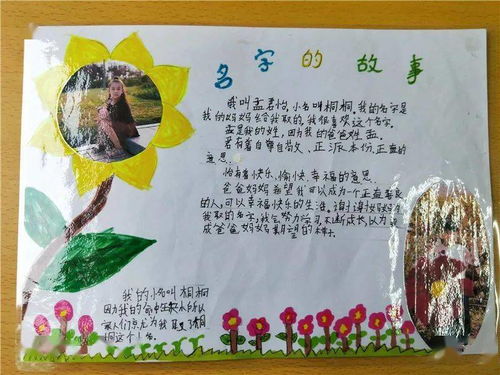 名字的故事
我叫孟君怡,小名叫桐桐。我的名字是
我的妈妈给我取的,我很喜欢这个名字。
孟是我的姓,因为我的爸爸姓孟。
君有着自尊自尚、正派本份、正直的
意思。
怡有着快乐、愉快、幸福的意思。
爸爸妈妈希望我可以成为一个正直善良
的人,可以幸福快乐的生活。谢谢妈妈为
我取的名字,我会努力学习,不断成长,以
成爸爸妈妈期望的样子。
我的小名叫桐桐
因为我的命中缺木所以
家人们为我取了桐
桐这个小名。